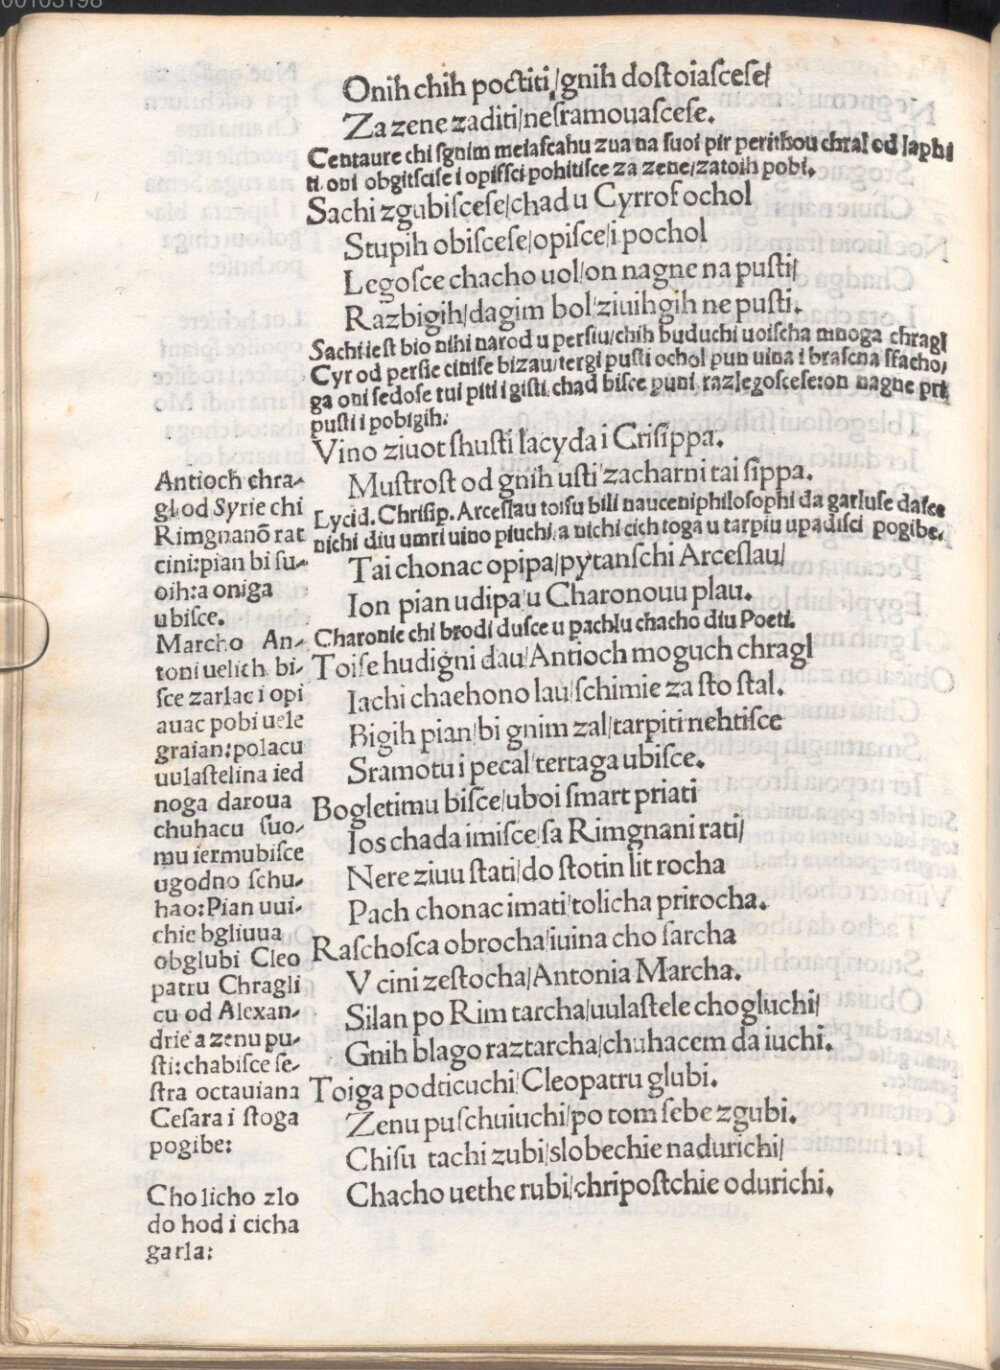 00103198
Onih chih poctiti/gnih dostoiaſceſe/
Za zene zaditi/neſramouaſceſe.
Centaure chi ſgnim meiaſcahu zua na ſuoi pir perithou chral od laphi
ti. oni obgitſciſe i opiſſci pohitiſce za zene/zatoih pobi.
Sachi zgubiſceſe/chad u Cyrrof ochol
Stupih obiſceſe/opiſce/i pochol
Legoſce chacho uol/on nagne na puſti/
Razbigih/dagim bol/ziuihgih ne puſti.
Sachi ieſt bio nihi narod u perſiu/chih buduchi uoiſcha mnoga chragl
Cyr od perſie ciniſe bizau/tergi puſti ochol pun uina i braſcna ſfacho,
ga oni ſedoſe tui piti i giſti. chad biſce puni razlegoſceſe:on nagne pri
puſti i pobigih:
Vino ziuot ſhuſti lacyda i Criſippa.
Muſtroſt od gnih uſti/zacharni tai ſippa.
Lycid. Chriſip. Arceſlau toiſu bili nauceniphiloſophi da garluſe daſce
nichi diu umri uino piuchi, a nichi cich toga u tarpiu upadiſci pogibe.
Tai chonac opipa/pytanſchi Arceſlau/
Ion pian udipa/u Charonouu plau.
Charonie chi brodi duſce u pachlu chacho diu Poeti.
Toiſe hudigni dau/Antioch moguch chragl
Iachi chaehono lau/ſchimie za ſto ſtal.
Bigih pian/bi gnim zal/tarpiti nehtiſce
Sramotu i pecal/tertaga ubiſce.
Bogletimu biſce/uboi ſmart priati
Ios chada imiſce/ſa Rimgnani rati/
Nere ziuu ſtati/do ſtotin lit rocha
Pach chonac imati/tolicha prirocha.
Raſchoſca obrocha/iuina cho ſarcha
V cini zeſtocha/Antonia Marcha.
Silan po Rim tarcha/uulaſtele chogluchi/
Gnih blago raztarcha/chuhacem da iuchi.
Toiga podticuchi/Cleopatru glubi.
Zenu puſchuiuchi/po tom ſebe zgubi.
Chiſu tachi zubi/slobechie nadurichi/
Chacho uethe rubi/chripoſtchie odurichi.
Antioch chra-
gl od Syrie chi
Rimgnanō rat
cini:pian bi ſu-
oih:a oniga
ubiſce.
Marcho An-
toni uelich bi-
ſce zarlac i opi
auac pobi uele
graian:polacu
uulaſtelina ied
noga daroua
chuhacu ſuo-
mu iermubiſce
ugodno ſchu-
hao:Pian uui-
chie bgliuua
obglubi Cleo
patru Chragli
cu od Alexan-
drie a zenu pu-
ſti:chabiſce ſe-
ſtra octauiana
Ceſara i ſtoga
pogibe:
Cho licho zlo
do hod i cicha
garla: